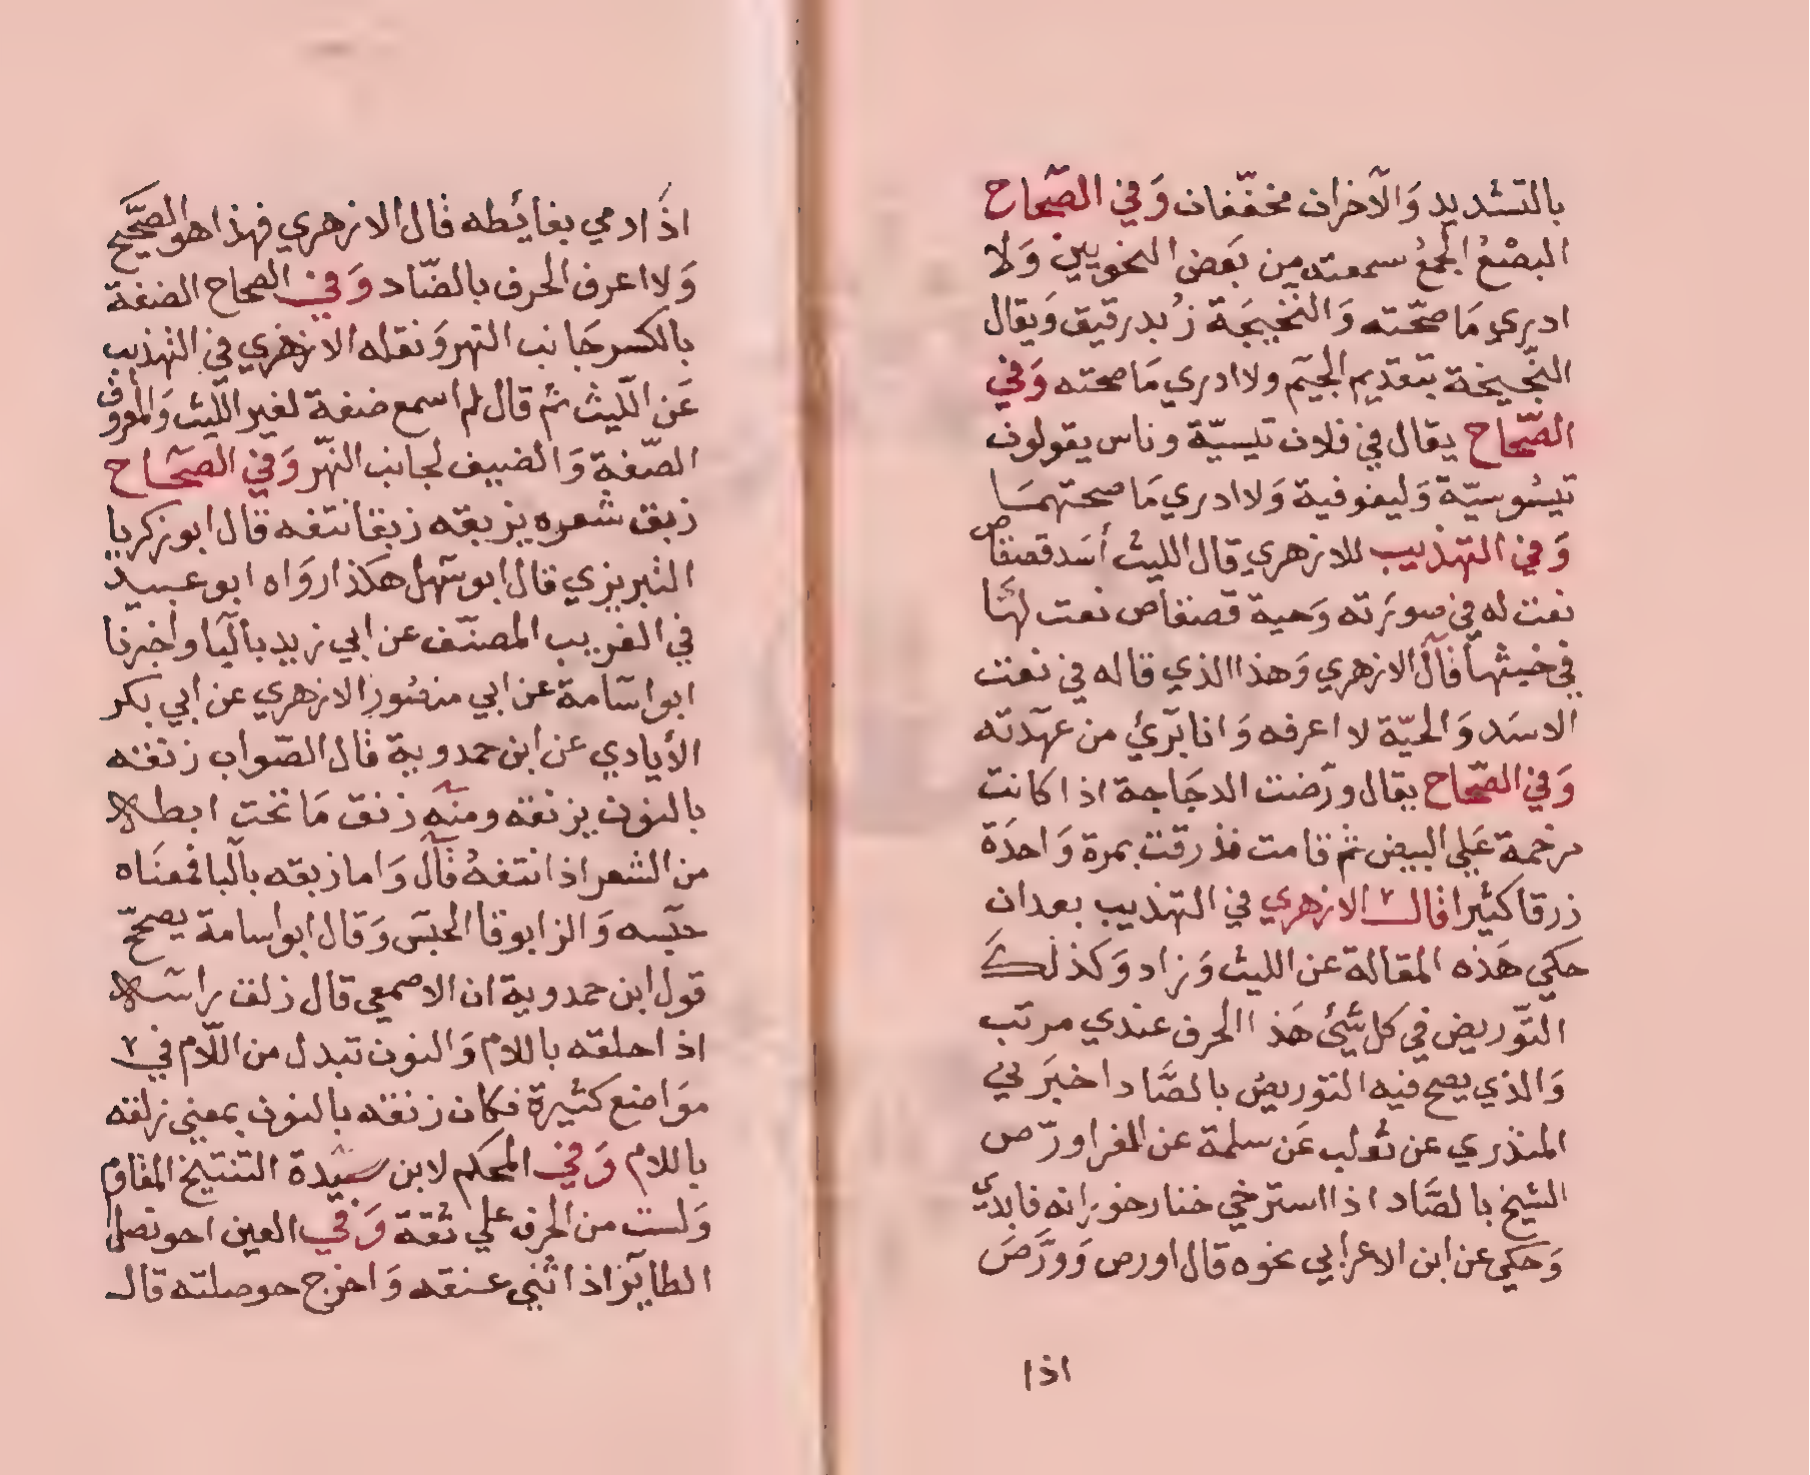 بالتشديد وَالآخران مخفّفان وَفي الصّحاح
البصْعُ الجمعُ سمعته من بَعض النحويين وَلا
ادري مَا صحّته وَالنخيجَة زُبد رقيق وَيقال
النّجيخة بتقديم الجيم ولا ادري مَا صحته وَفي
الصّحاح يقال في فلان تيسيّة وناس يقولون
تيسُوسيّة وَليفوفية وَلا ادري مَا صحتهمسَا
وَفي التهذيب للازهري قال الليث أسَد قصنفاص
نعت له في صورَته وَحية قصنفاص نعت لهَا
في خبثها قال الازهري وَهذا الذي قاله في نعت
الاسَد وَالحيّة لا اعرفه وَانا برّيُ من عهدته
وَفي الصّحاح يقال ورّضت الدجَاجة اذا كانت
مرخمة عَلي البيض ثم قامت فذرقت بمرة وَاحدَة
زرقا كثيرا قال الازهري في التهذيب بعد ان
حكي هَذه المقالة عن الليث وَزاد وَكذلك
التّوريض في كل شيئ هَذا الحرف عندي مرتب
وَالذي يصح فيه التوريصُ بالصَّاد اخبرَني
المنذري عن ثعلب عَن سلمة عن الفرا ورّص
الشيخ بالصَّاد اذا استرخي حتار خورانه فابدي
وَحَكي عن ابن الاعرابي نحوه قال اورص وَورَّصَ
اذا
اذَا رمي بغائطه قال الازهري فهذا هو الصّحيح
وَلا اعرف الحرف بالضّاد وَفي الصحاح الضفة
بالكسر جَانب النهر وَنقله الازهري في التهذيب
عَن اللّيث ثم قال لم اسمع ضفة لغير اللّيث وَالمعروف
الصّفة وَالضيف لجانب النهّر وَفي الصّحَاح
زبق شعره يزبقه زبقا نتفه قال ابو زكريا
التبريزي قال ابو سَهل هكذا روَاه ابو عبيد
في الغريب المصنّف عن ابي زيد بالبا واخبرنا
ابو اسَامة عن ابي منصُور الازهري عن ابي بكر
الأيادي عن ابن حمدوية قال الصّواب زنقه
بالنون يزنقه ومنه زنق مَا تحت ابطه
من الشعر اذا نتفهُ قال وَاما زبقه بالبا فمعنَاه
حبَسه وَالزابوقا الحبسَ وَقال ابو اسامة يصحّح
قول ابن حمدوية ان الاصمعي قال زلق راسَه
اذا حلقه باللام وَالنون تبدل من اللّام في
موَاضع كثيرة فكان زنقه بالنون بمعني زلقه
باللام وَفي المحكم لابن سيدة التنتيخ المفاق
وَلست من الحرف علي ثقة وَفي العين احونصل
الطاير اذا اثني عنقه وَاخرج حوصلته قال